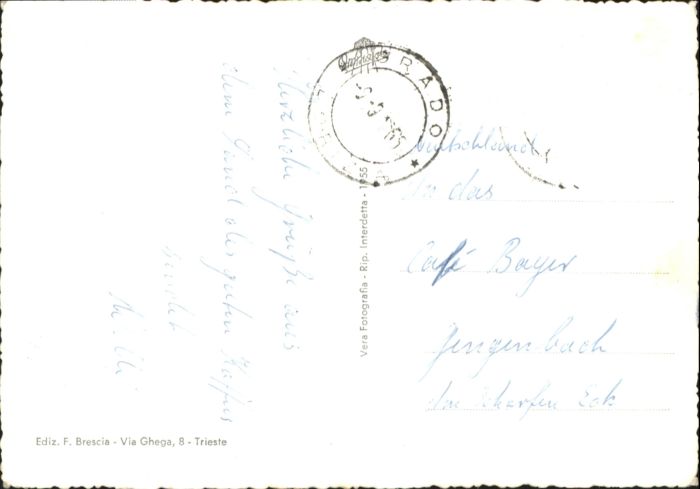 Herzliche Grüße aus
dem Land des guten Kaffees
sendet
GRADO
Vera Fotografia - Rip. Interdetta - 1955
Deutschland
An das
Café Bayer
Gengenbach
Am scharfen Eck
Ediz. F. Brescia - Via Ghega, 8 - Trieste